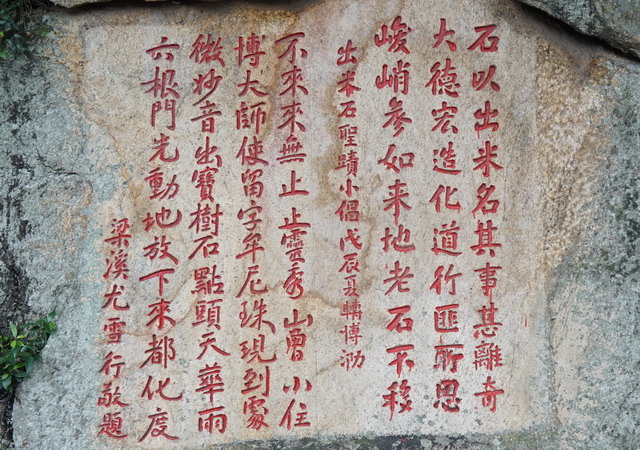 石以出米名其事甚離奇
大德宏造化道行匪所思
峻峭參如来地老石不移
出米石聖蹟小倡戊辰夏轉博泐
不來來無止止靈秀山曾小住
博大師使留字牟尼珠現到處
微妙音出寶樹石點頭天華雨
六根門先動地放下來都化度
梁溪尤雪行敬題